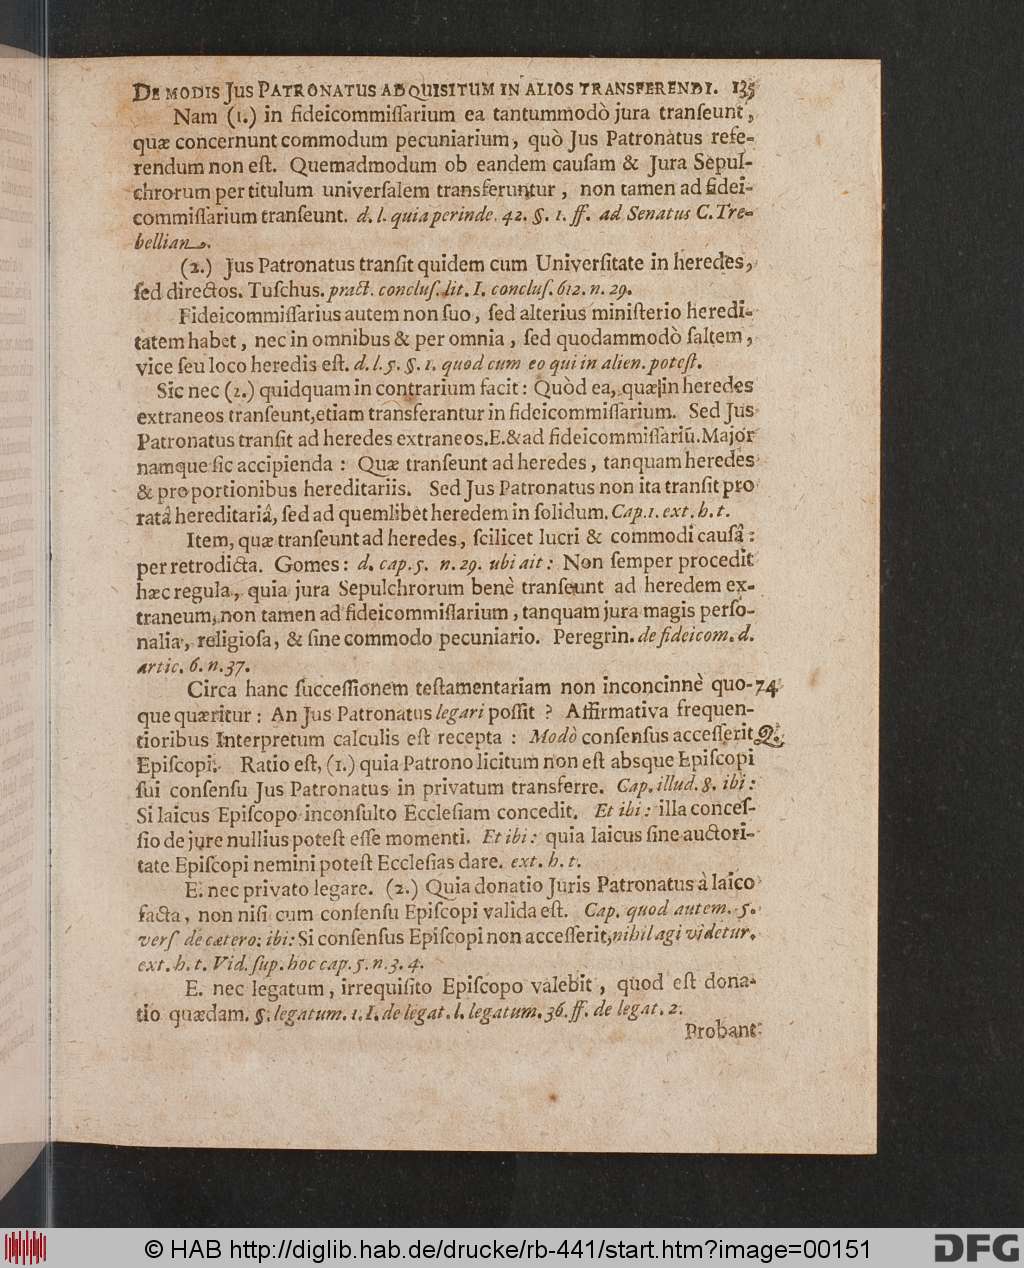 DE MODIS JUS PATRONATUS ADQUISITUM IN ALIOS TRANSFERENDI. 135
Nam (1.) in fideicommiſſarium ea tantummodò jura tranſeunt,
quæ concernunt commodum pecuniarium, quò Jus Patronatus refe-
rendum non eſt. Quemadmodum ob eandem cauſam & Jura Sepul-
chrorum per titulum univerſalem transferuntur, non tamen ad fidei-
commiſſarium tranſeunt. d. l. quia perinde. 42. §. 1. ff. ad Senatus C. Tre-
bellian.
(2.) Jus Patronatus tranſit quidem cum Univerſitate in heredes,
ſed directos. Tuſchus. pract. concluſ. lit. I. concluſ. 612. n. 29.
Fideicommiſſarius autem non ſuo, ſed alterius miniſterio heredi-
tatem habet, nec in omnibus & per omnia, ſed quodammodò ſaltem,
vice ſeu loco heredis eſt. d. l. 5. §. 1. quod cum eo qui in alien. poteſt.
Sic nec (2.) quidquam in contrarium facit: Quòd ea, quæ in heredes
extraneos tranſeunt, etiam transferantur in fideicommiſſarium. Sed Jus
Patronatus tranſit ad heredes extraneos. E. & ad fideicommiſſariũ. Major
namque ſic accipienda: Quæ tranſeunt ad heredes, tanquam heredes
& pro portionibus hereditariis. Sed Jus Patronatus non ita tranſit pro
ratâ hereditariâ, ſed ad quemlibet heredem in ſolidum. Cap. 1. ext. h. t.
Item, quæ tranſeunt ad heredes, ſcilicet lucri & commodi cauſâ:
per retrodicta. Gomes: d. cap. 5. n. 29. ubi ait: Non ſemper procedit
hæc regula, quia jura Sepulchrorum benè tranſeunt ad heredem ex-
traneum, non tamen ad fideicommiſſarium, tanquam jura magis perſo-
nalia, religioſa, & ſine commodo pecuniario. Peregrin. de fideicom. d.
artic. 6. n. 37.
Circa hanc ſucceſſionem teſtamentariam non inconcinnè quo- 74.
que quæritur: An Jus Patronatus legari poſſit? Affirmativa frequen-
tioribus Interpretum calculis eſt recepta: Modò conſenſus acceſſerit Q.
Epiſcopi. Ratio eſt, (1.) quia Patrono licitum non eſt absque Epiſcopi
ſui conſenſu Jus Patronatus in privatum transferre. Cap. illud. 8. ibi:
Si laicus Epiſcopo inconſulto Eccleſiam concedit. Et ibi: illa conceſ-
ſio de jure nullius poteſt eſſe momenti. Et ibi: quia laicus ſine auctori-
tate Epiſcopi nemini poteſt Eccleſias dare. ext. h. t.
E. nec privato legare. (2.) Quia donatio Juris Patronatus à laico
facta, non niſi cum conſenſu Epiſcopi valida eſt. Cap. quod autem. 5.
verſ de cætero: ibi: Si conſenſus Epiſcopi non acceſſerit, nihil agi videtur.
ext. h. t. Vid. ſup. hoc cap. 5. n. 3. 4.
E. nec legatum, irrequiſito Epiſcopo valebit, quod eſt dona-
tio quædam. §. legatum. 1. I. de legat. l. legatum. 36. ff. de legat. 2.
Probant
© HAB http://diglib.hab.de/drucke/rb-441/start.htm?image=00151
DFG